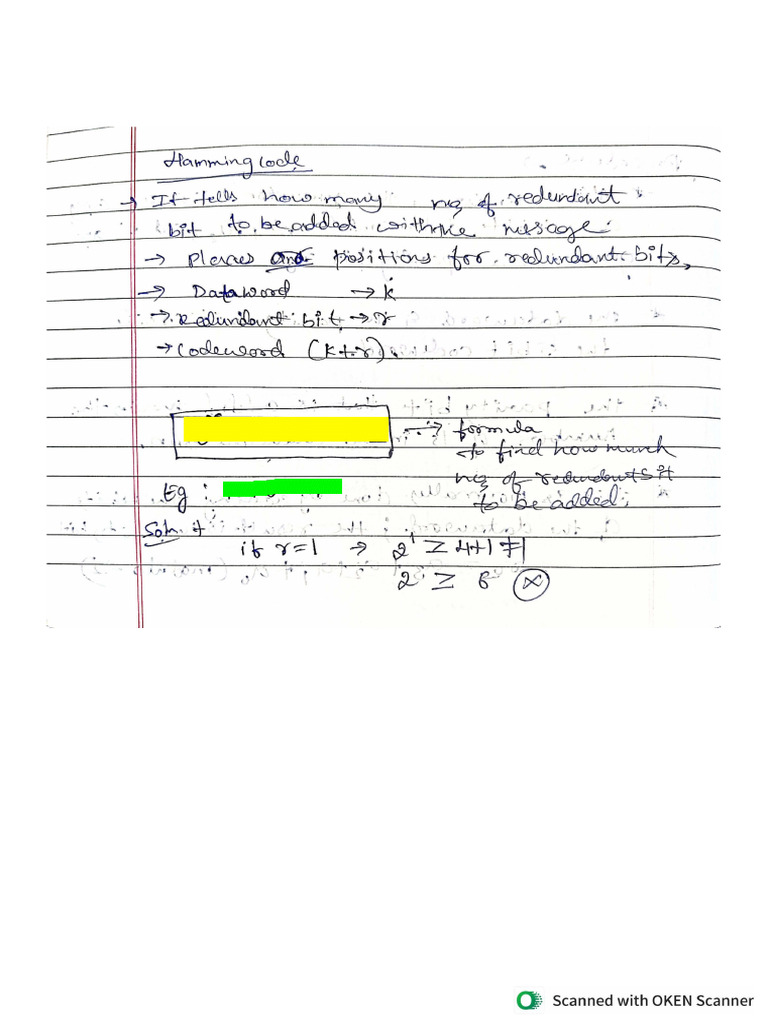 Hamming code
→ It tells how many no of redundant
bit to be added with the message.
→ Places and positions for redundant bits,
→ Dataword → k
→ Redundant bit → r
→ Codeword (k+r).
→ formula
to find how much
no of redundant bit
to be added;
Eg :
Soln. if
if r=1 → 2¹ ≥ 4+1+1
2 ≥ 6 ⊗
Scanned with OKEN Scanner